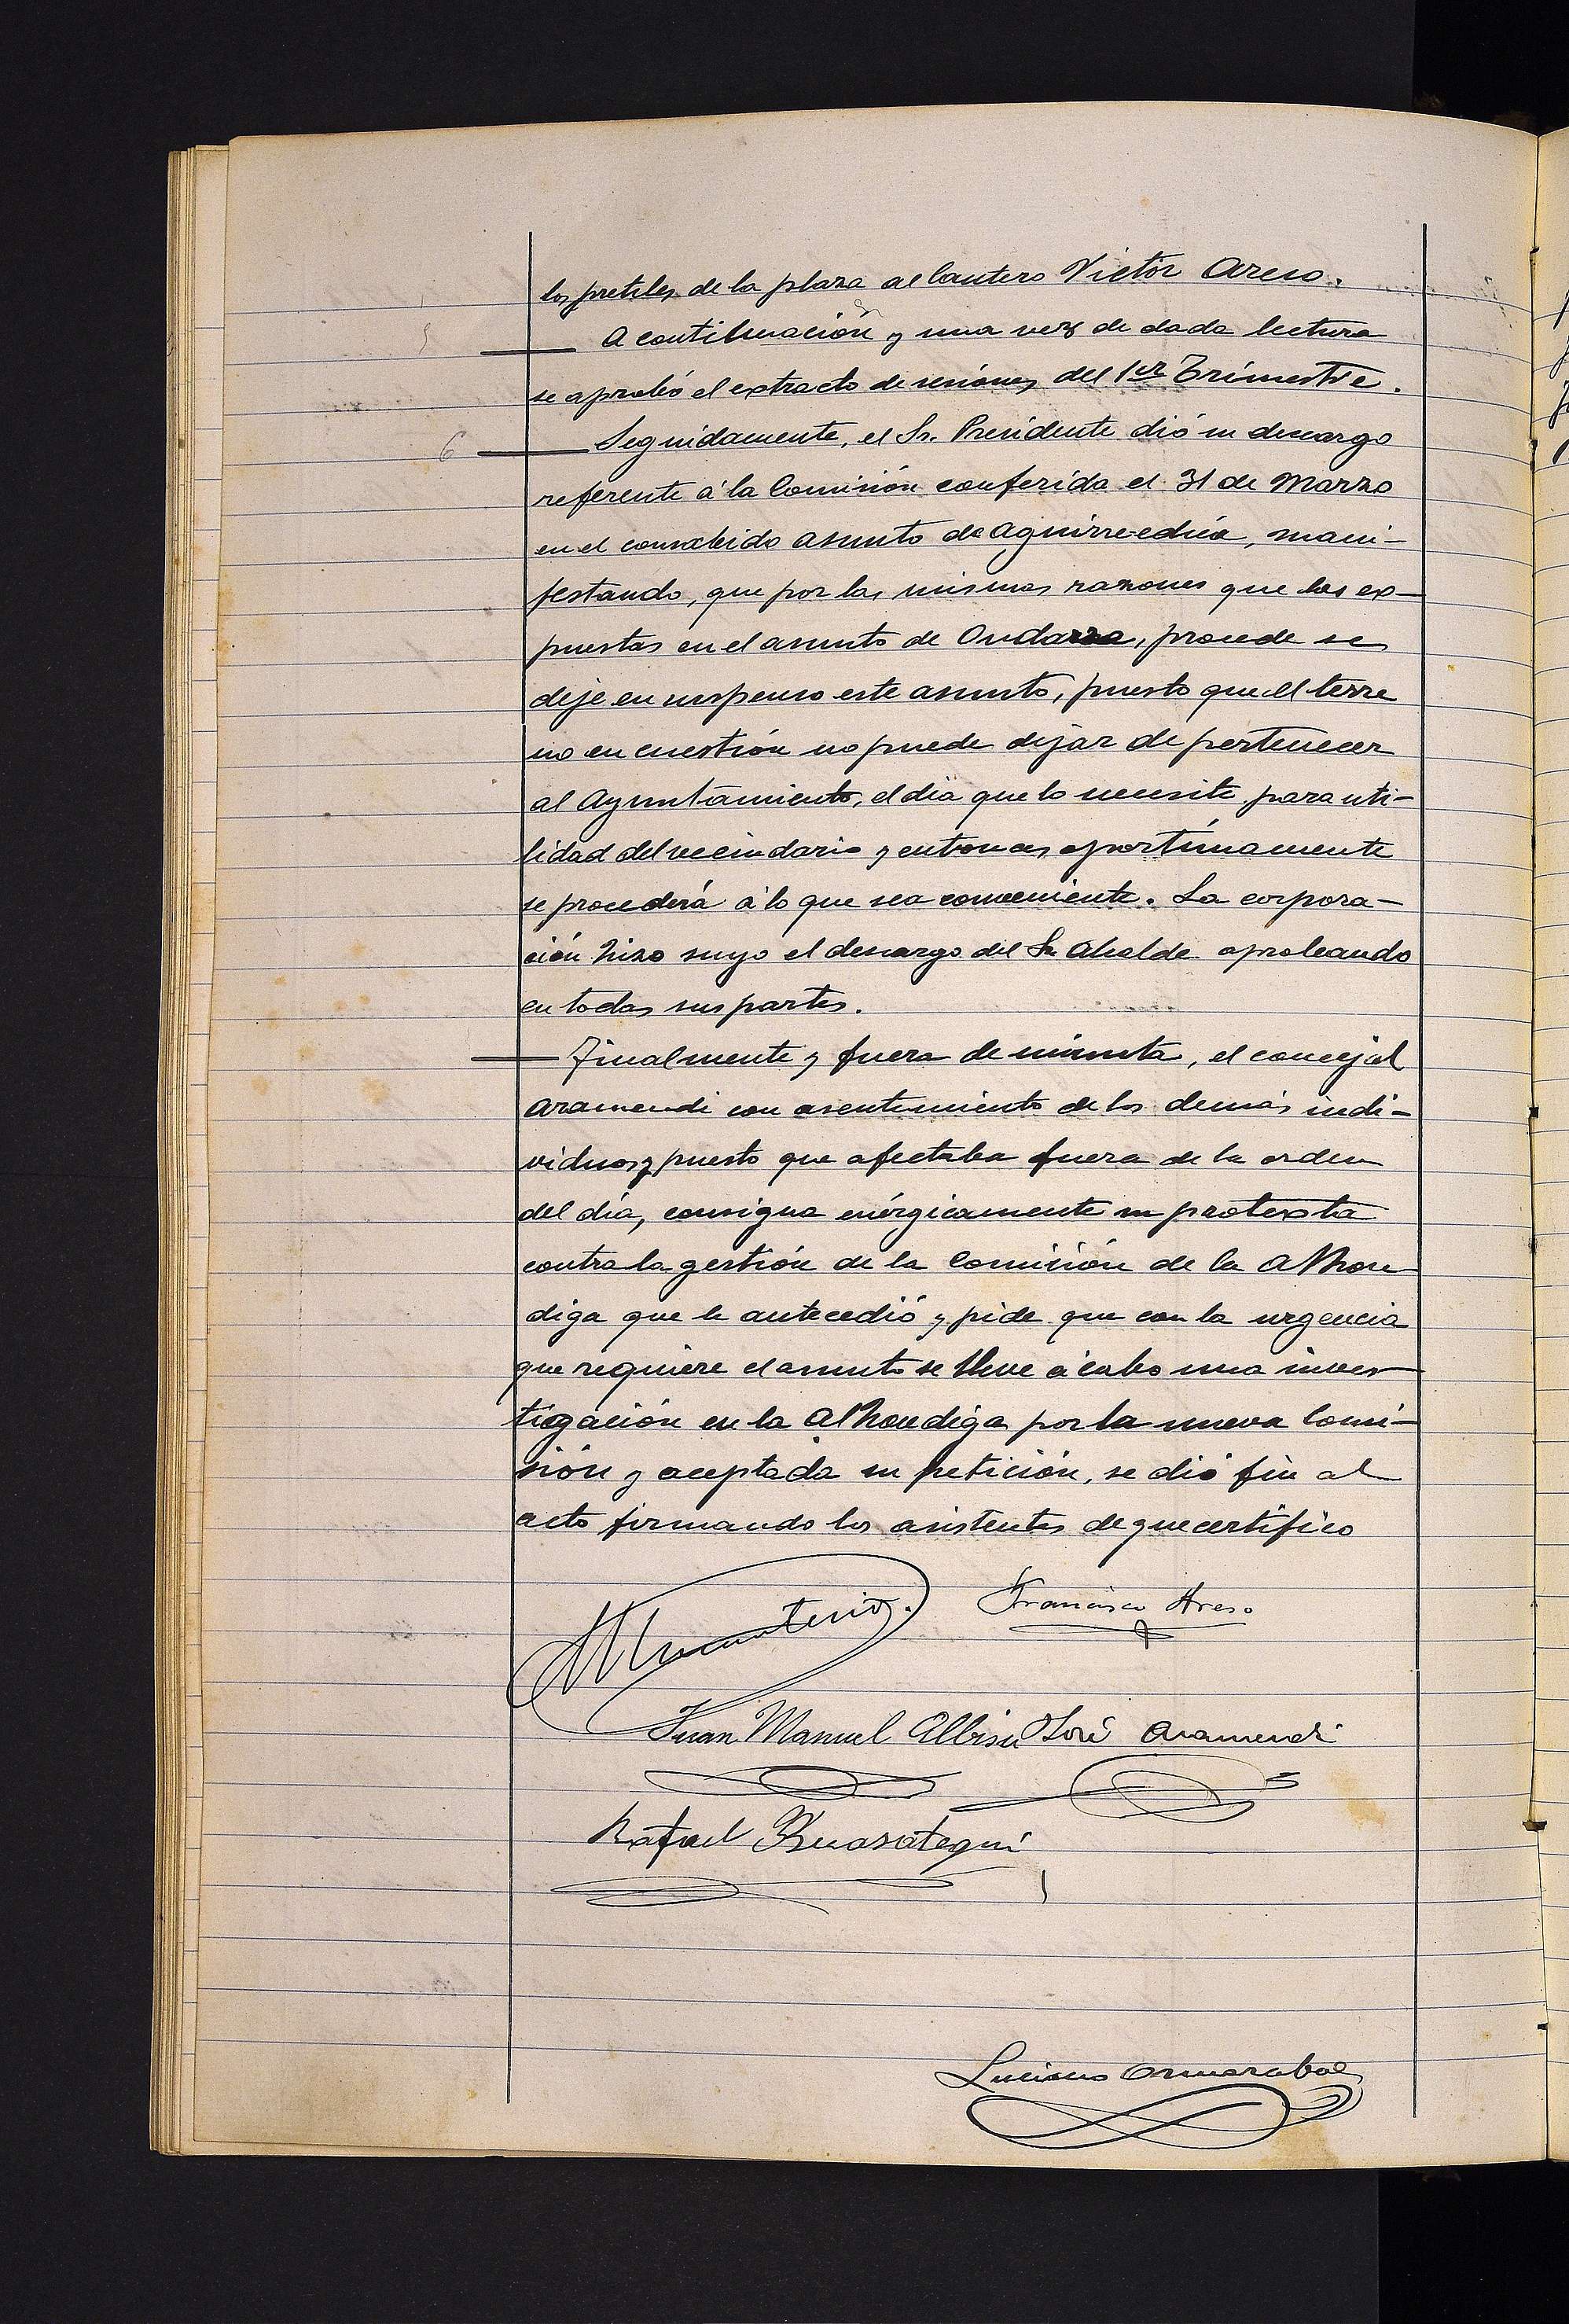 los pretiles de la plaza al Cantero Victor Areso.
5 A continuación y una vez de dada lectura
se aprobó el extracto de sesiones del 1er Trimestre.
6 Seguidamente, el Sr. Presidente dió su descargo
referente á la Comisión conferida el 31 de Marzo
en el consabido asunto de Aguirre-echéa, mani-
festando, que por las mismas razones que las ex-
puestas en el asunto de Ondarra, procede se
deje en suspenso este asunto, puesto que el terre
no en cuestión no puede dejar de pertenecer
al Ayuntamiento, el dia que lo necesite para uti-
lidad del vecindario y entonces oportúnamente
se procederá á lo que sea conveniente. La corpora-
ción hizo suyo el descargo del Sr Alcalde aprobando
en todas sus partes.
Finalmente y fuera de minuta, el concejal
Aramendi con asentimiento de los demás indi-
viduos y puesto que afectaba fuera de la orden
del día, consigna enérgicamente su protexta
contra la gestión de la Comisión de la Alhon
diga que le antecedió y pide que con la urgencia
que requiere el asunto se lleve á cabo una inves
tigación en la Alhondiga por la nueva Comi-
sión y aceptada su petición, se dió fin al
acto firmando los asistentes de que certifico
Francisco Areso
Juan Manuel Albisu José Aramendi
Rafael
Luciano